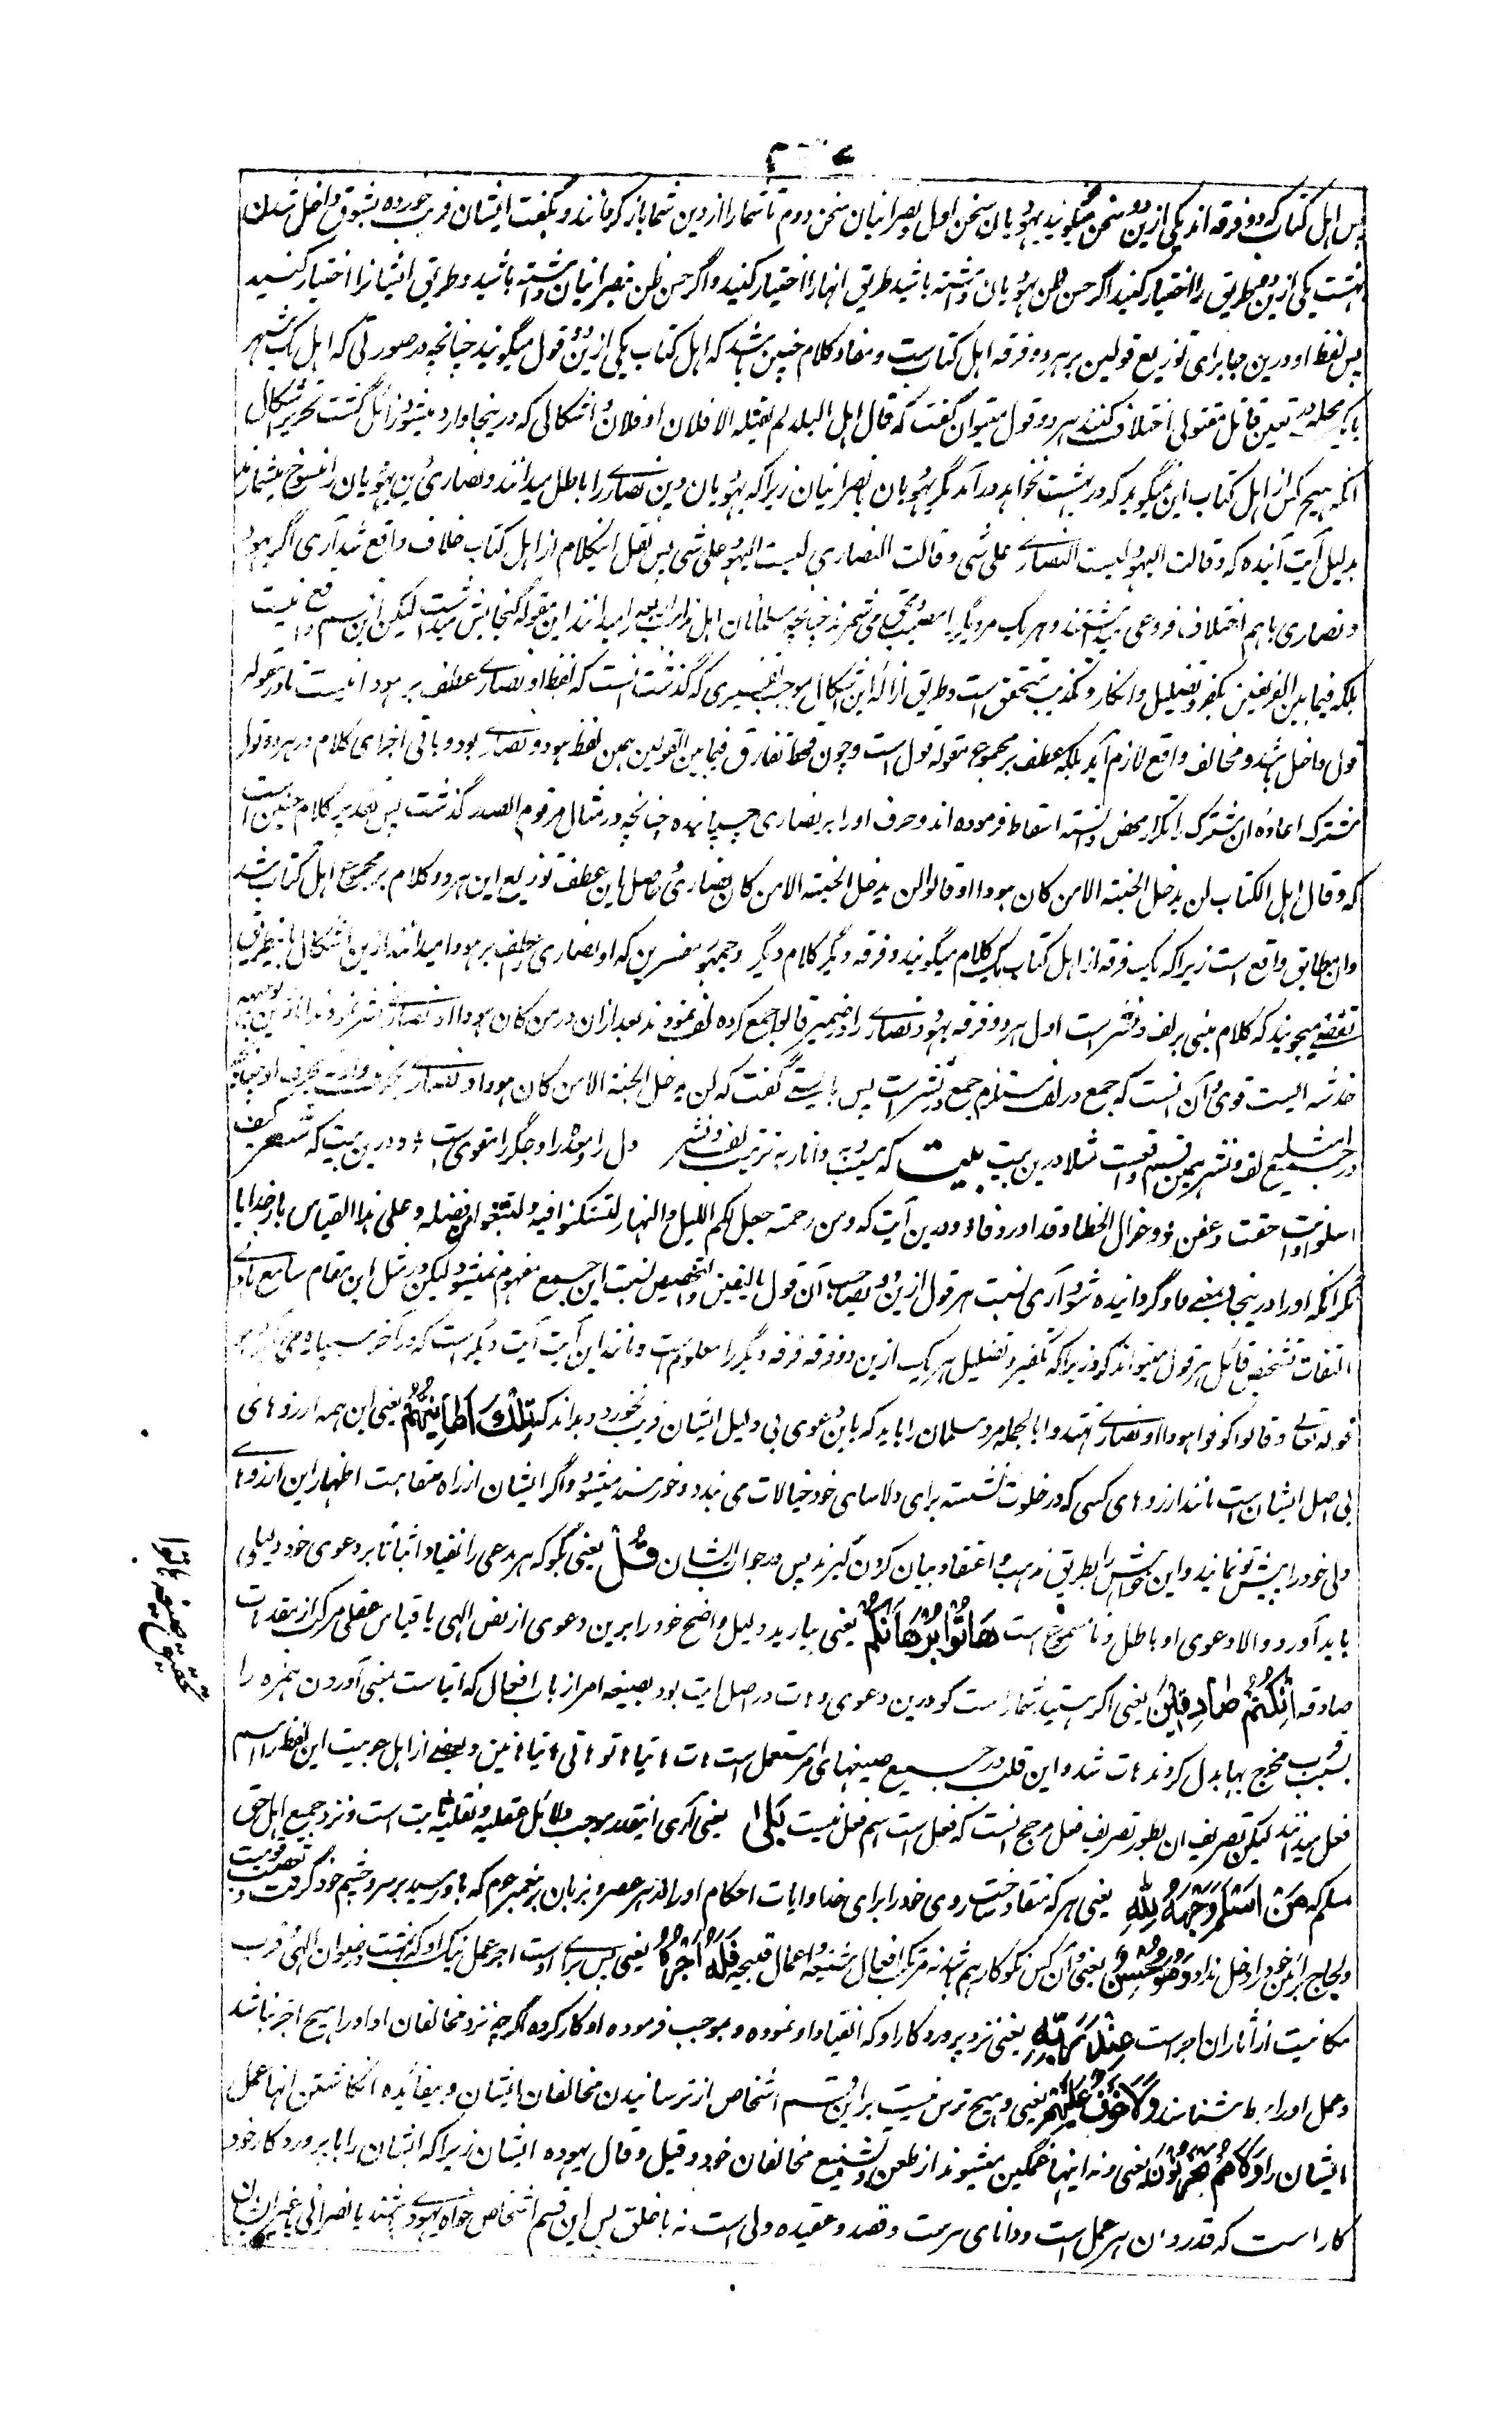 پس اهل کتاب که دو فرقه اند یکی ازین دو سخن میگویند یهودیان سخن اول و نصرانیان سخن دوم تا شما را از دین شما باز گردانند و بگفت ایشان فریب خورده بشوق داخل شدن
بهشت یکی ازین دو طریق را اختیار کنید اگر حسن ظن به یهودیان داشته باشید طریق انها را اختیار کنید و اگر حسن ظن بنصرانیان داشته باشید و طریق ایشانرا اختیار کنید
پس لفظ او درین جا برای توزیع قولین بر هر دو فرقه اهل کتاب است و مفاد کلام چنین باشد که اهل کتاب یکی ازین دو قول میگویند چنانچه در صورتی که اهل یک شهر
یا یک محله در تعین قاتل مقتولی اختلاف کنند بهر دو قول میتوان گفت که قال اهل البلد لم یقتله الا فلان او فلان و اشکالی که درینجا وارد میشود زائل گشت تحریر اشکال
انکه هیچ کس از اهل کتاب این نمیگوید که در بهشت نخواهد در آمد مگر یهودیان یا نصرانیان زیرا که یهودیان دین نصاری را باطل میدانند و نصاری دین یهودیان را منسوخ میشمارند
بدلیل آیت آینده که و قالت الیهود لیست النصاری علی شی و قالت النصاری لیست الیهود علی شی پس نقل اینکلام از اهل کتاب خلاف واقع شد آری اگر یهود
و نصاری باهم اختلاف فروعی میداشتند و هر یک مر دیگر را مصیب و محق می شمردند چنانچه مسلمانان اهل مذاهب اربعه را میدانند این مقوله گنجایش میداشت لیکن ازین قسم واقع نیست
بلکه فیما بین الفریقین تکفیر و تضلیل و انکار و تکذیب متحقق است و طریق ازاله این اشکال بموجب تفسیری که گذشت آنست که لفظ او نصاری عطف بر هودا نیست تا در مقوله
قول داخل باشد و مخالف واقع لازم آید بلکه عطف بر مجموع مقوله قول است و چون فقط تفارق فیما بین القولین همین لفظ هود و نصاری بود و باقی اجزای کلام در هر دو قول
مشترک اعاده ان مشترک را تکرار محض دانسته اسقاط فرموده اند و حرف او را بر نصاری چسپانیده چنانچه در مثال مرقوم الصدر گذشت پس تقدیر کلام چنین است
که و قال اهل الکتاب لن یدخل الجنة الا من کان هودا او قالوا لن یدخل الجنة الا من کان نصاری و حاصل این عطف توزیع این هر دو کلام بر مجموع اهل کتاب شد
و ان مطابق واقع است زیرا که یک فرقه از اهل کتاب یک کلام میگویند و فرقه دیگر کلام دیگر و جمهور مفسرین که او نصاری را عطف بر هودا میدانند ازین اشکال باینطریق
تفصی میجویند که کلام مبنی بر لف و نشر است اول هر دو فرقه یهود و نصاری را در ضمیر قالوا جمع کرده لف نمودند بعد ازان در من کان هودا او نصاری نشر نمودند اما درین توجیه
خدشه ایست قوی و آن انست که جمع در لف مستلزم جمع در نشر است پس بایستی گفت که لن یدخل الجنة الا من کان هودا و نصاری بحرف واو نه بحرف او چنانچه
در جمیع امثله لف و نشر همین قسم واقعست مثلا درین بیت بیت که سیب و به و انار به ترتیب لف و نشر دل را و معده را و جگر را مقوی است و درین بیت که شعر کیف
اسلو وانت حقف و غصن و غزال الخطا و قدا و ردفا و درین آیت که و من رحمته جعل لکم اللیل والنهار لتسکنوا فیه و لتبتغوا من فضله و علی هذا القیاس بار خدایا
مگر انکه او را درینجا بمعنی واو گردانیده شود آری نسبت هر قول ازین دو بصاحب آن قول بالیقین و التخصیص نسبت این جمیع مفهوم نمیشود لیکن در مثل این مقام سامع بادنی
التفات تشخیص قائل هر قول میتواند کرد زیرا که تکفیر و تضلیل هر یک ازین دو فرقه فرقه دیگر را معلوم است و مانند این آیت آیت دیگر است که در آخر سیپاره می آید
قوله تعالی و قالوا کونوا هودا او نصاری تهتدوا بالجمله مرد مسلمان را باید که باین دعوی بی دلیل ایشان فریب نخورد و بداند که تِلْكَ أَمَانِيُّهُمْ یعنی این همه ارزوهای
بی اصل ایشان است مانند ارزوهای کسی که در خلوت نشسته برای دلاسای خود خیالات می بندد و خورسند میشود و اگر ایشان از راه سفاهت اظهار این ارزوهای
دلی خود را پیش تو نمایند و این خواهش را بطریق مذهب و اعتقاد بیان کردن گیرند پس در جواب ایشان قُلْ یعنی بگو که هر مدعی را نفیا و اثباتا بر دعوی خود دلیلی
باید آورد و الا دعوی او باطل و نامسموع است هَاتُوا بُرْهَانَكُمْ یعنی بیارید دلیل واضح خود را برین دعوی از نص الهی یا قیاس عقلی مرکب از مقدمات
صادقه إِنْ كُنْتُمْ صَادِقِينَ یعنی اگر هستید شما راست گو درین دعوی و هات در اصل ایت بود بصیغه امر از باب افعال که ایتاست بمعنی آوردن همزه را
بسبب قرب مخرج بها بدل کردند هات شد و این قلب در جمیع صیغهای امر مستعمل است هات هاتیا هاتوا هاتی هاتیا هاتین و بعضی از اهل عربیت این لفظ را اسم
فعل میدانند لیکن تصریف ان بطور تصریف فعل مرجح انست که فعل است اسم فعل نیست بَلَى یعنی آری اینقدر بموجب دلائل عقلیه و نقلیه ثابت است و نزد جمیع اهل حق
مسلم که مَنْ أَسْلَمَ وَجْهَهُ لِلَّهِ یعنی هر که منقاد ساخت روی خود را برای خدا و ایات احکام او را در هر عصر و بزبان هر پیغمبر هم که باو رسید بر سر و چشم خود گرفت و تعصب قومیت
و لجاج برائی من خود را دخل نداد وَهُوَ مُحْسِنٌ یعنی و آن کس نکوکار هم باشد نه مرتکب افعال شنیعه و اعمال قبیحه فَلَهُ أَجْرُهُ یعنی پس برای اوست اجر عمل نیک او که بهشت و رضوان الهی و قرب
مکانیت از آثار ان اجر است عِنْدَ رَبِّهِ یعنی نزد پروردگار او که انقیاد او نموده و بموجب فرموده او کار کرده اگرچه نزد مخالفان او او را هیچ اجر نباشد
و عمل او را حبط شناسند وَلَا خَوْفٌ عَلَيْهِمْ یعنی و هیچ ترس نیست بر این قسم اشخاص از ترسانیدن مخالفان ایشان و بیفائده انگاشتن انها عمل
ایشان را وَلَا هُمْ يَحْزَنُونَ یعنی و نه اینها غمگین میشوند از طعن و تشنیع مخالفان خود و قیل و قال بیهوده ایشان زیرا که ایشان را با پروردگار خود
کار است که قدردان هر عمل است و دانای نیت و قصد و عقیده دلی است نه با خلق پس این قسم اشخاص خواه یهودی باشند یا نصرانی یا غیر ایشان
تحقیق صیغه هاتوا